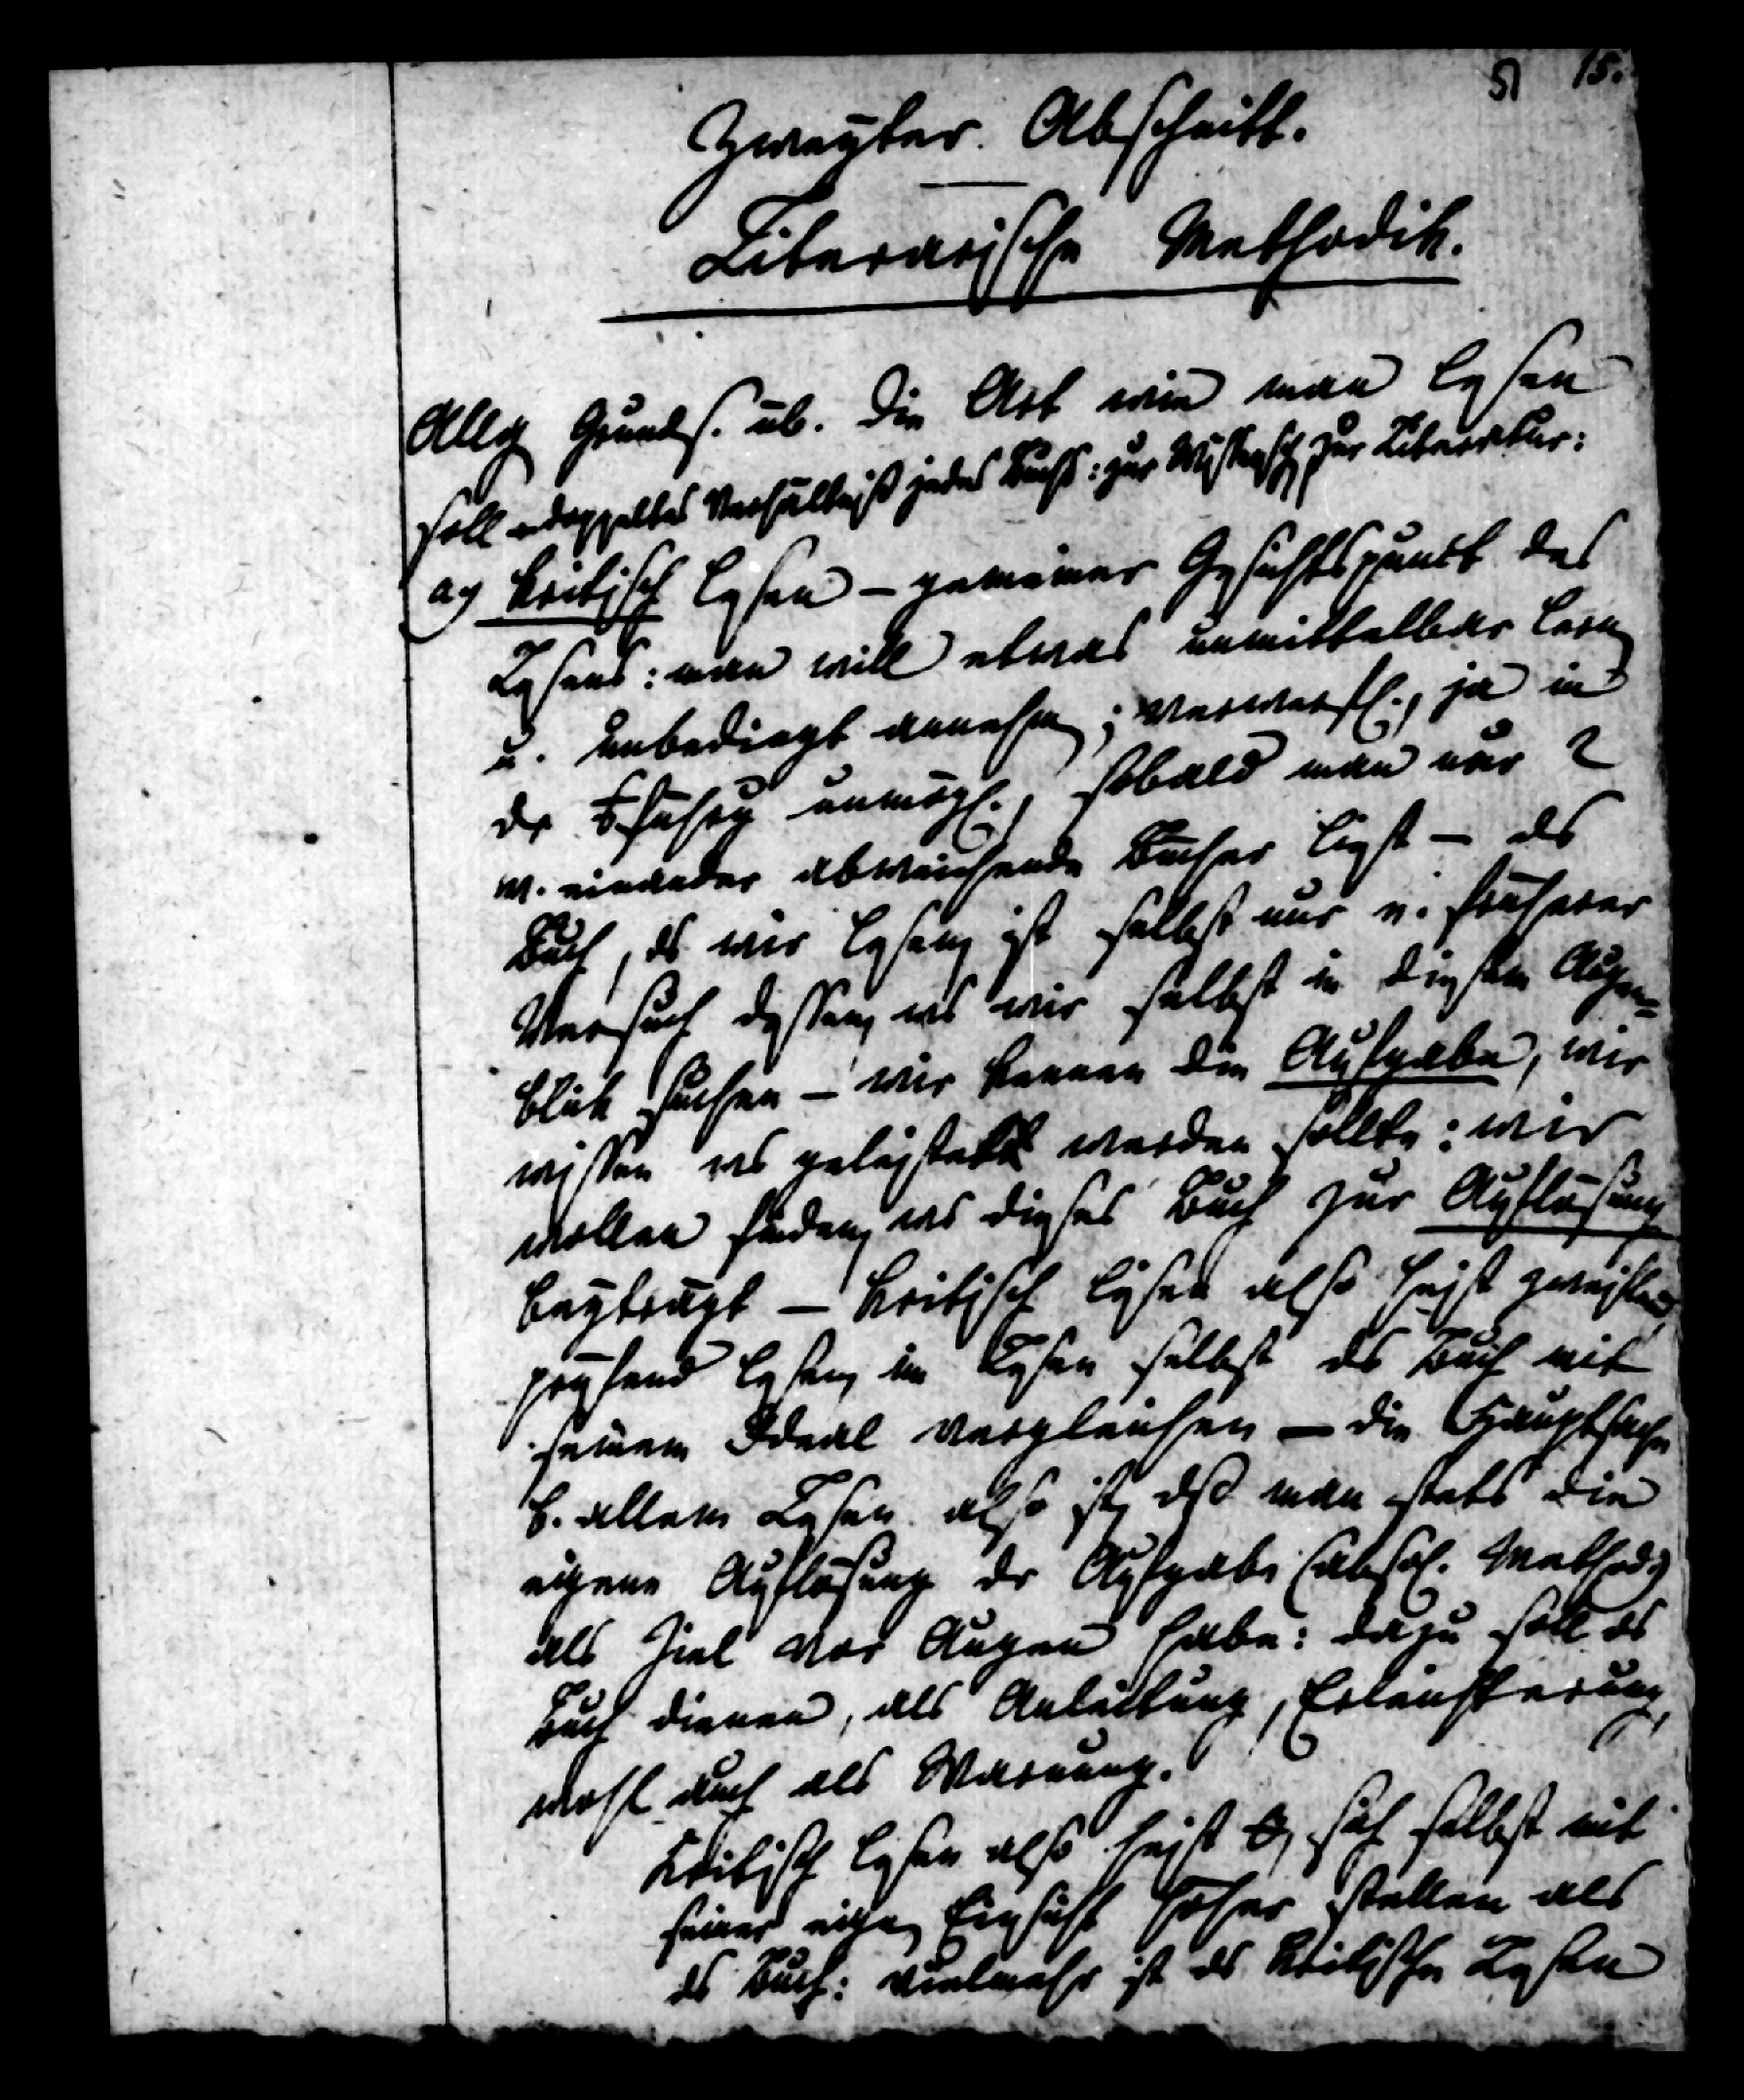 51 15.
Zweyter Abschnitt.
Literarische Methodik.
Allg Grunds. üb. die Art wie man lesen
soll doppeltes Verhältniß jedes Buchs: zur Wissensch zur Literatur:
a) kritisch lesen – gemeiner Gesichtspunct des
Lesens: man will etwas unmittelbar lern
u. unbedingt annehm; verwerfl., ja in
dr unmögl., sobald man nur 2
v. einander abweichende Bücher liest – ds
Buch, ds wir lesen ist selbst nur n. früherer
Versuch dessen, ws wir selbst in diesem Augen-
blick suchen – wir kennen die Aufgabe, wir
wissen ws geleistet werden sollte: wir
wollen finden, ws dieses Buch zur Auflösung
beyträgt – kritisch lesen also heist zweifelnd
prüfend lesen, im Lesen selbst ds Buch mit
seinem Ideal vergleichen – die Hauptsache
b. allem Lesen also ist, dß man stets die
eigene Auflösung dr Aufgabe (absol. Method)
als Ziel vor Augen habe: dazu soll ds
Buch dienen, als Anleitung, Erläuterung,
wohl auch als Warnung.
Kritisch lesen also heist sich selbst mit
seiner eign Einsicht höher stellen als
ds Buch: vielmehr ist ds kritische Lesen